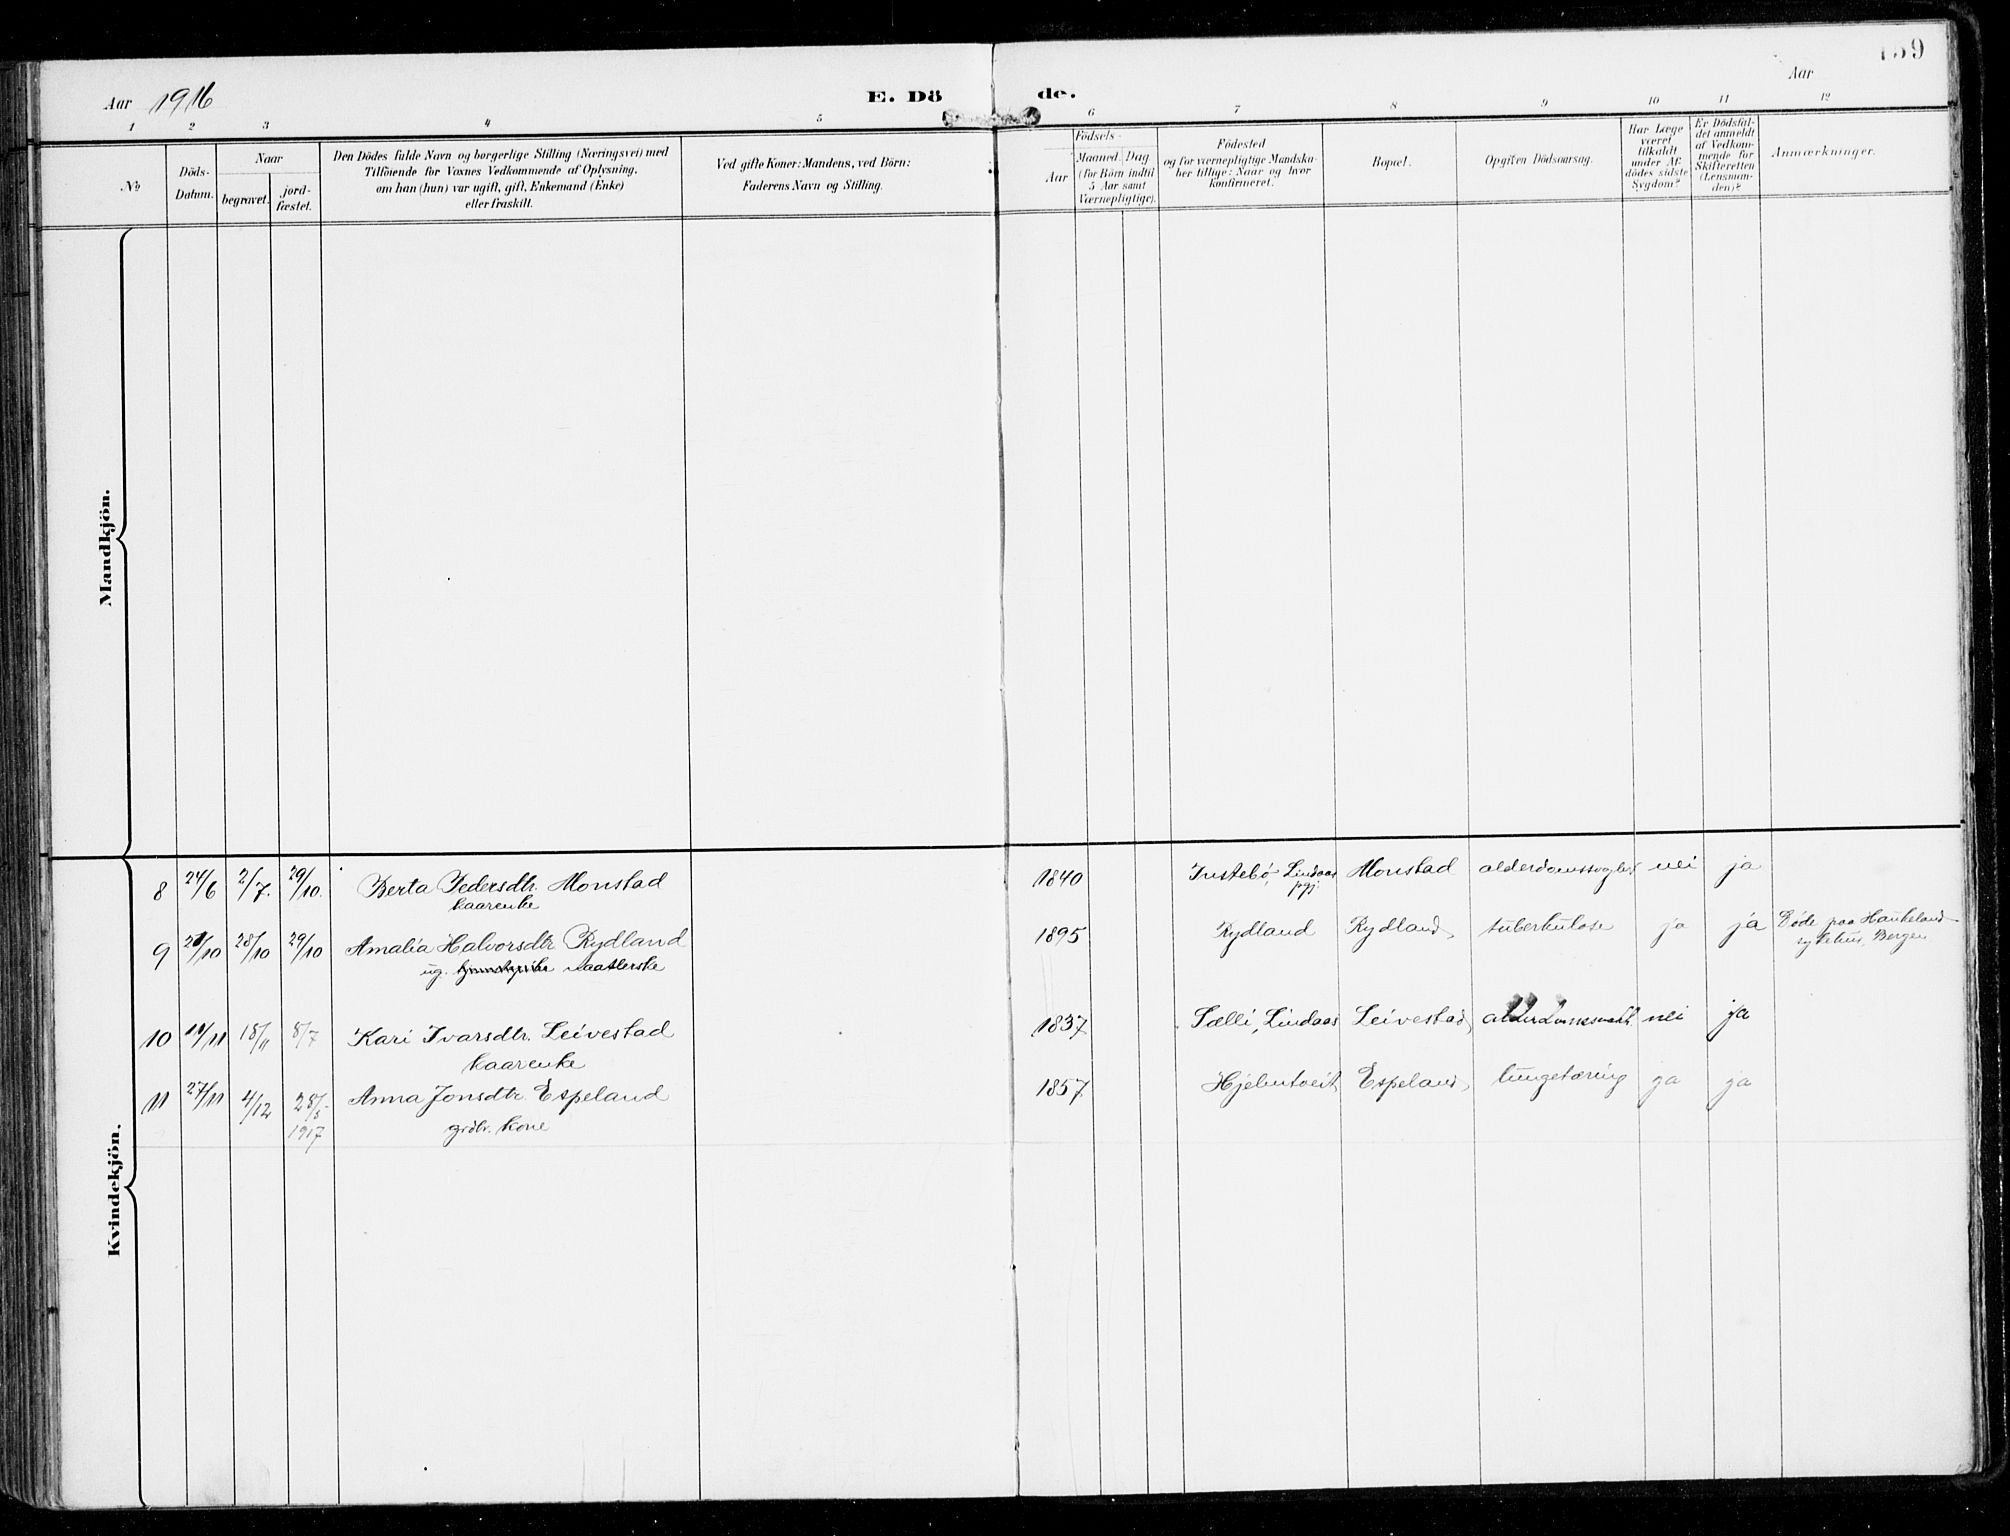 Aar 1916 E. Dö de. Aar 139
1 2 3 4 5 6 7 8 9 10 11 12
№
Döds-
Datum.
Naar
begravet.
jord-
fæstet.
Den Dödes fulde Navn og borgerlige Stilling (Næringsvei) med
Tilföiende for Voxnes Vedkommende af Oplysning,
om han (hun) var ugift, gift, Enkemand (Enke)
eller fraskilt.
Ved gifte Koner: Mandens, ved Börn:
Faderens Navn og Stilling.
Födsels-
Aar
Maaned Dag
(for Börn indtil
5 Aar samt
Værnepligtige).
Födested
og for værnepligtige Mandska-
ber tillige: Naar og hvor
konfirmeret.
Bopæl.
Opgiven Dödsaarsag.
Har Læge
været
tilkaldt
under Af-
dödes sidste
Sygdom?
Er Dödsfal-
det anmeldt
af Vedkom-
mende for
Skifteretten
(Lensman-
den)?
Anmærkninger.
Mandkjön.
Kvindekjön.
8 24/6 2/7. 29/10. Berta Pedersdtr. Monstad 1840 Instebö Lindaas Monstad nei ja
kaarenke pgj.
9 /10 28/10 29/10 Amalia Halvorsdtr Rydland 1895 Rydland Rydland, tuberkulose ja ja Döde paa Haukeland
ug. sykehus, Bergen
10 /11 18/11 8/7 Kari Ivarsdtr. Leivestad 1837 Sælli, Lindaas Leivestad nei ja
kaarenke
11 27/11 4/12 28/5 Anna Jonsdtr Espeland 1857 Hjelmtveit Espeland, lungetæring ja ja
1917 grdbr. kone